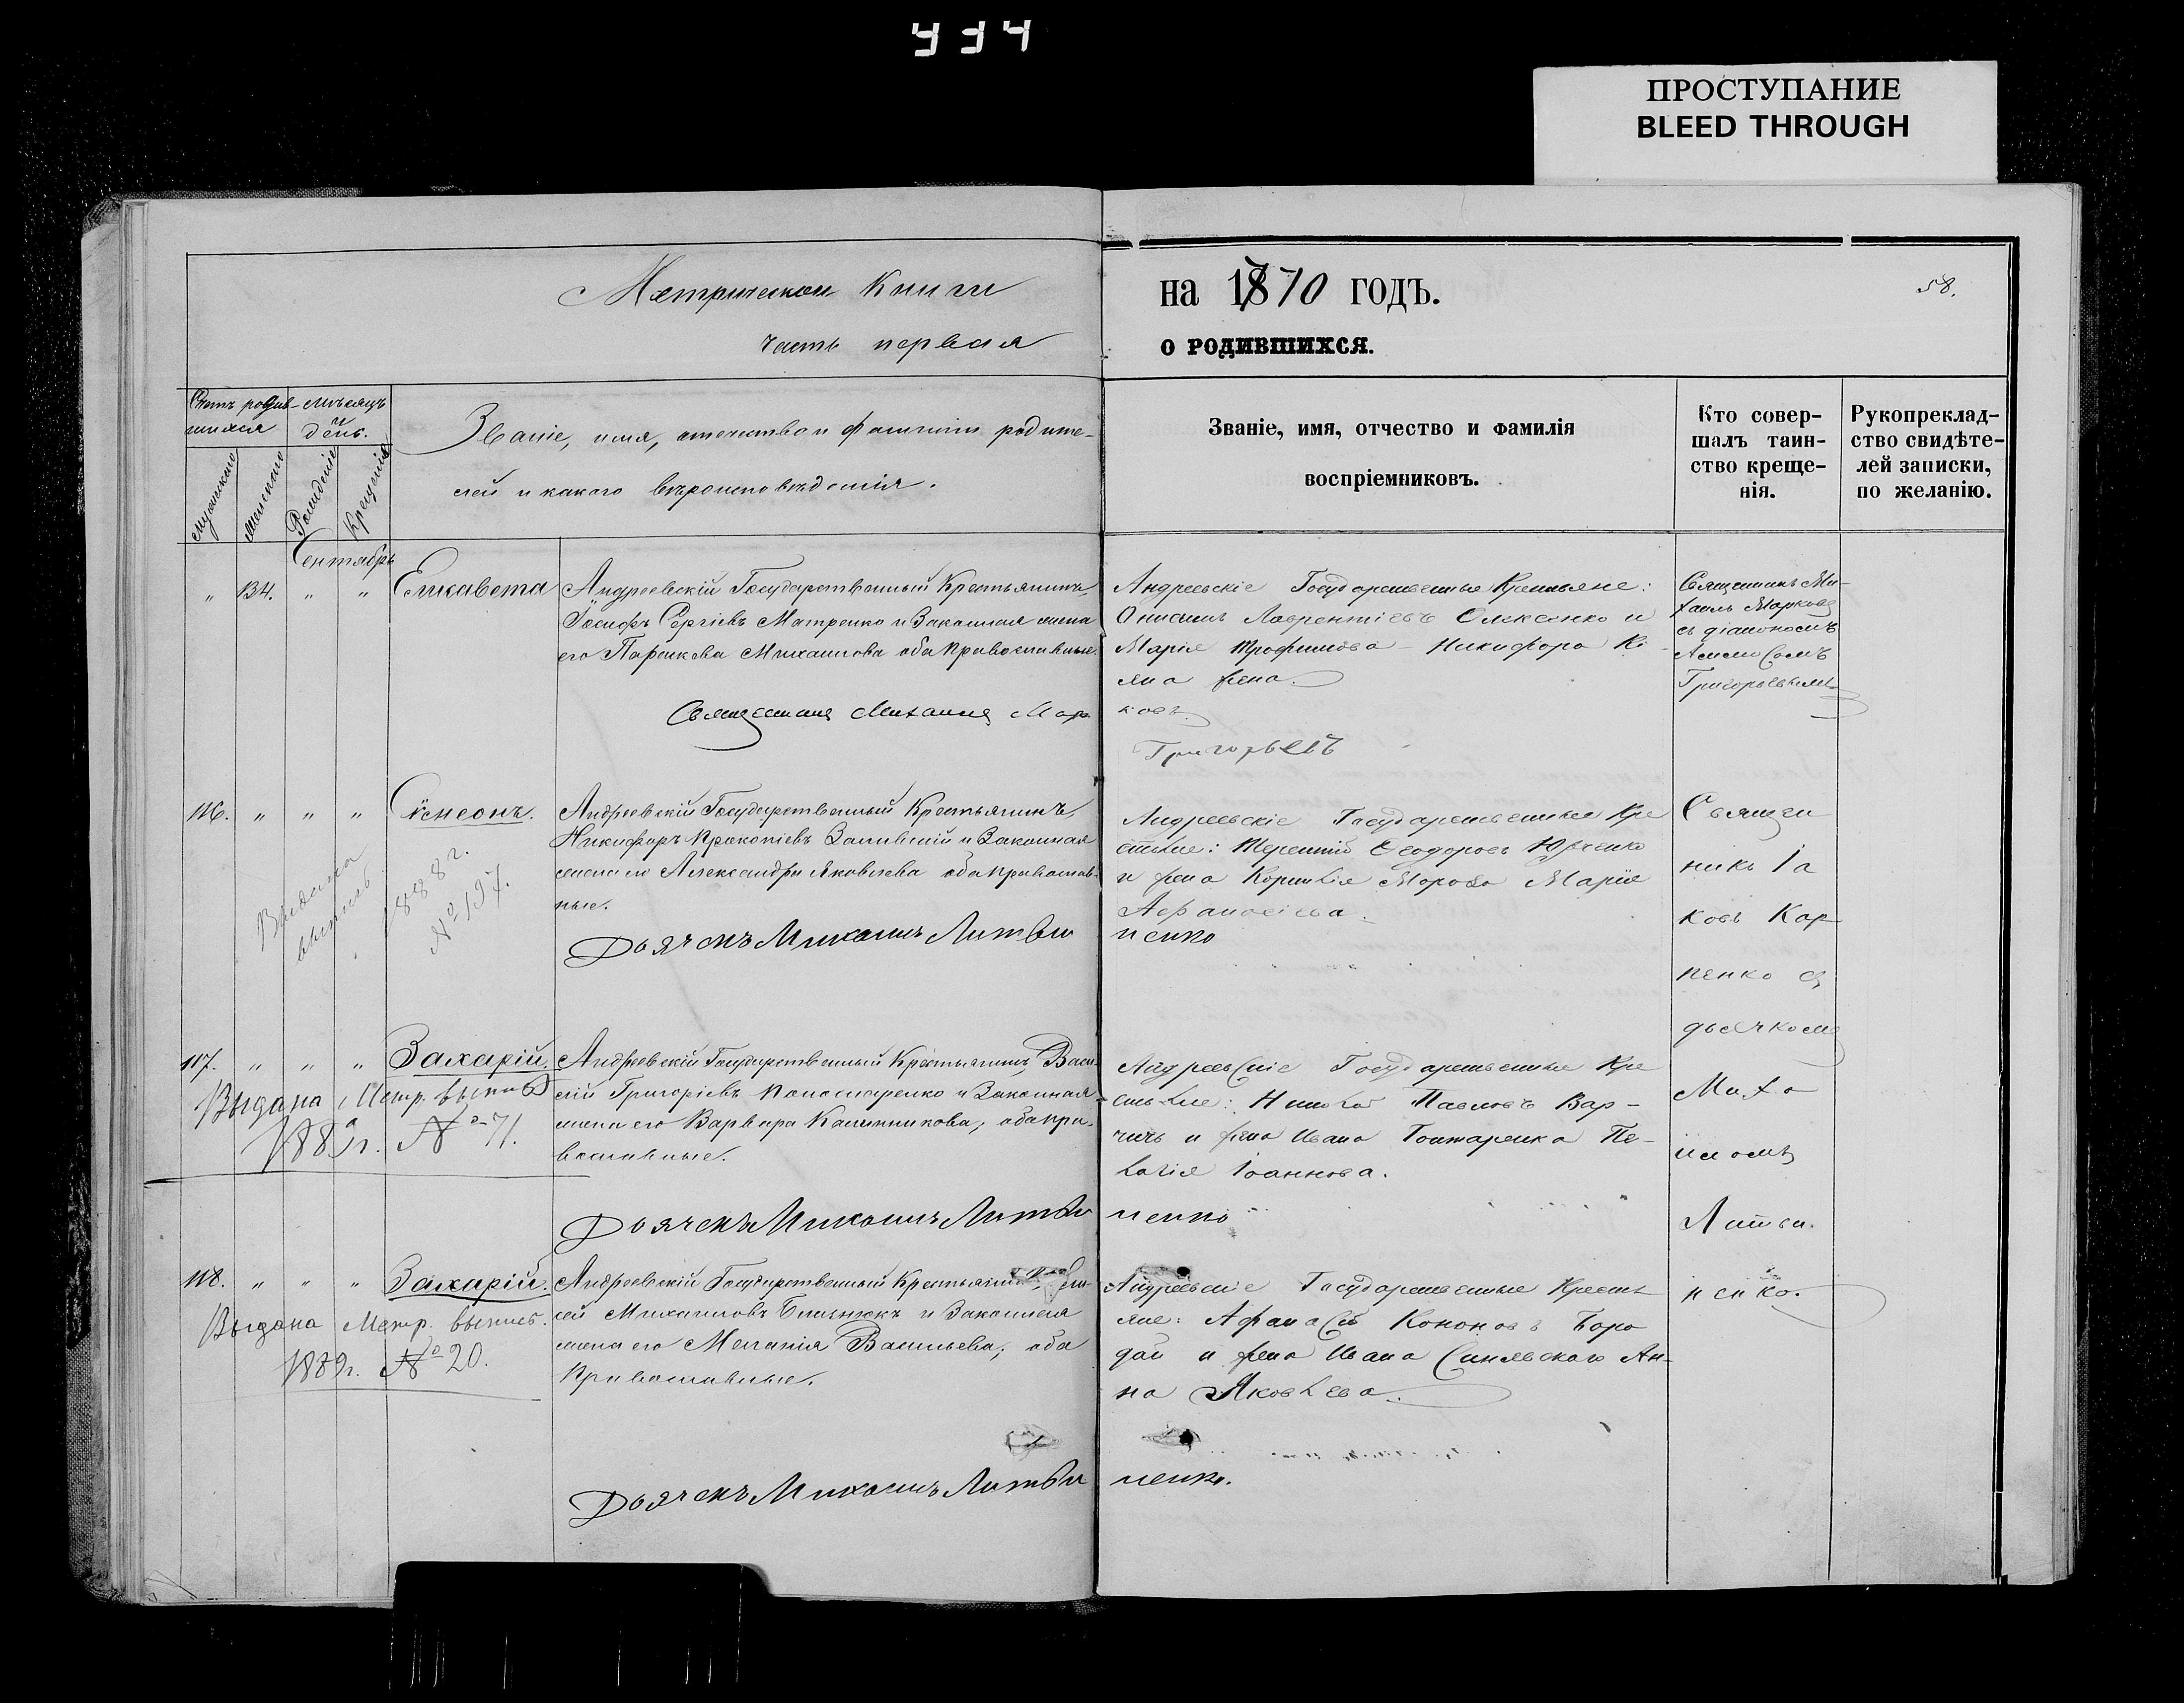 434
ПРОСТУПАНИЕ
BLEED THROUGH
Метрической Книги
на 1870 годъ.
58.
часть первая
о родившихся.
Счетъ родив-
шихся
мѣсяцъ и день.
Мужескаго
Женскаго
Рожденіе
Крещенія
Званіе, имя, отчество и фамилія родите-
лей и какого вѣроисповѣданія.
Званіе, имя, отчество и фамилія
воспріемниковъ.
Кто совер-
шалъ таин-
ство креще-
нія.
Рукопреклад-
ство свидѣте-
лей записки,
по желанію.
Сентябрь
" 134. " " Елисавета
Андреевскій Государственный Крестьянинъ,
Іосифъ Сергіевъ Матренко и Законная жена
его Параскева Михаилова оба православные.
Священникъ Михаилъ Мар
Андреевскіе Государственные Крестьяне:
Онисимъ Лаврентіевъ Олексенко и
Марія Трофимова Никифора Кі-
яна жена.
ковъ
Григорьевъ
Священникъ Ми-
хаилъ Марковъ
съ діакономъ
Григорьевымъ
116. " " " Симеонъ.
Выдана
выпись
1888 г.
№ 197.
Андреевскій Государственный Крестьянинъ,
Никифоръ Прокопіевъ и Законная
жена его Александра Яковлева оба православ-
ные.
Дьячекъ Михаилъ Литви
Андреевскіе Государственные Кре
стьяне: Терентій Ѳеодоровъ Юрченко
и жена Корнилія Мороза Марія
Афанасіева.
ненко
Священ
никъ Іа
ковъ Кар
пенко съ
дьячкомъ
Миха
иломъ
Литви.
ненко.
117. " " " Захарій.
Выдана Метр. выпись
№ 71.
Андреевскій Государственный Крестьянинъ, Васи-
лій Григоріевъ Пономаренко и Законная
жена его Варвара Калинникова, оба пра-
вославные.
Дьячекъ Михаилъ Литви
Андреевскіе Государственные Кре
стьяне: Николай Павловъ Вар-
чичъ и жена Ивана Гонтаренка Пе-
лагія Іоаннова.
ненко
118. " " " Захарій.
Выдана Метр. выпись.
1889г. № 20.
Андреевскій Государственный Крестьянинъ, Ели-
сей Михаиловъ и Законная
жена его Меланія Васильева, оба
Православные.
Дьячекъ Михаилъ Литви
Андреевскіе Государственные Кресть
яне: Афанасій Кононовъ Боро
дай и жена Ивана Синявского Ан-
на Яковлева.
ненко.